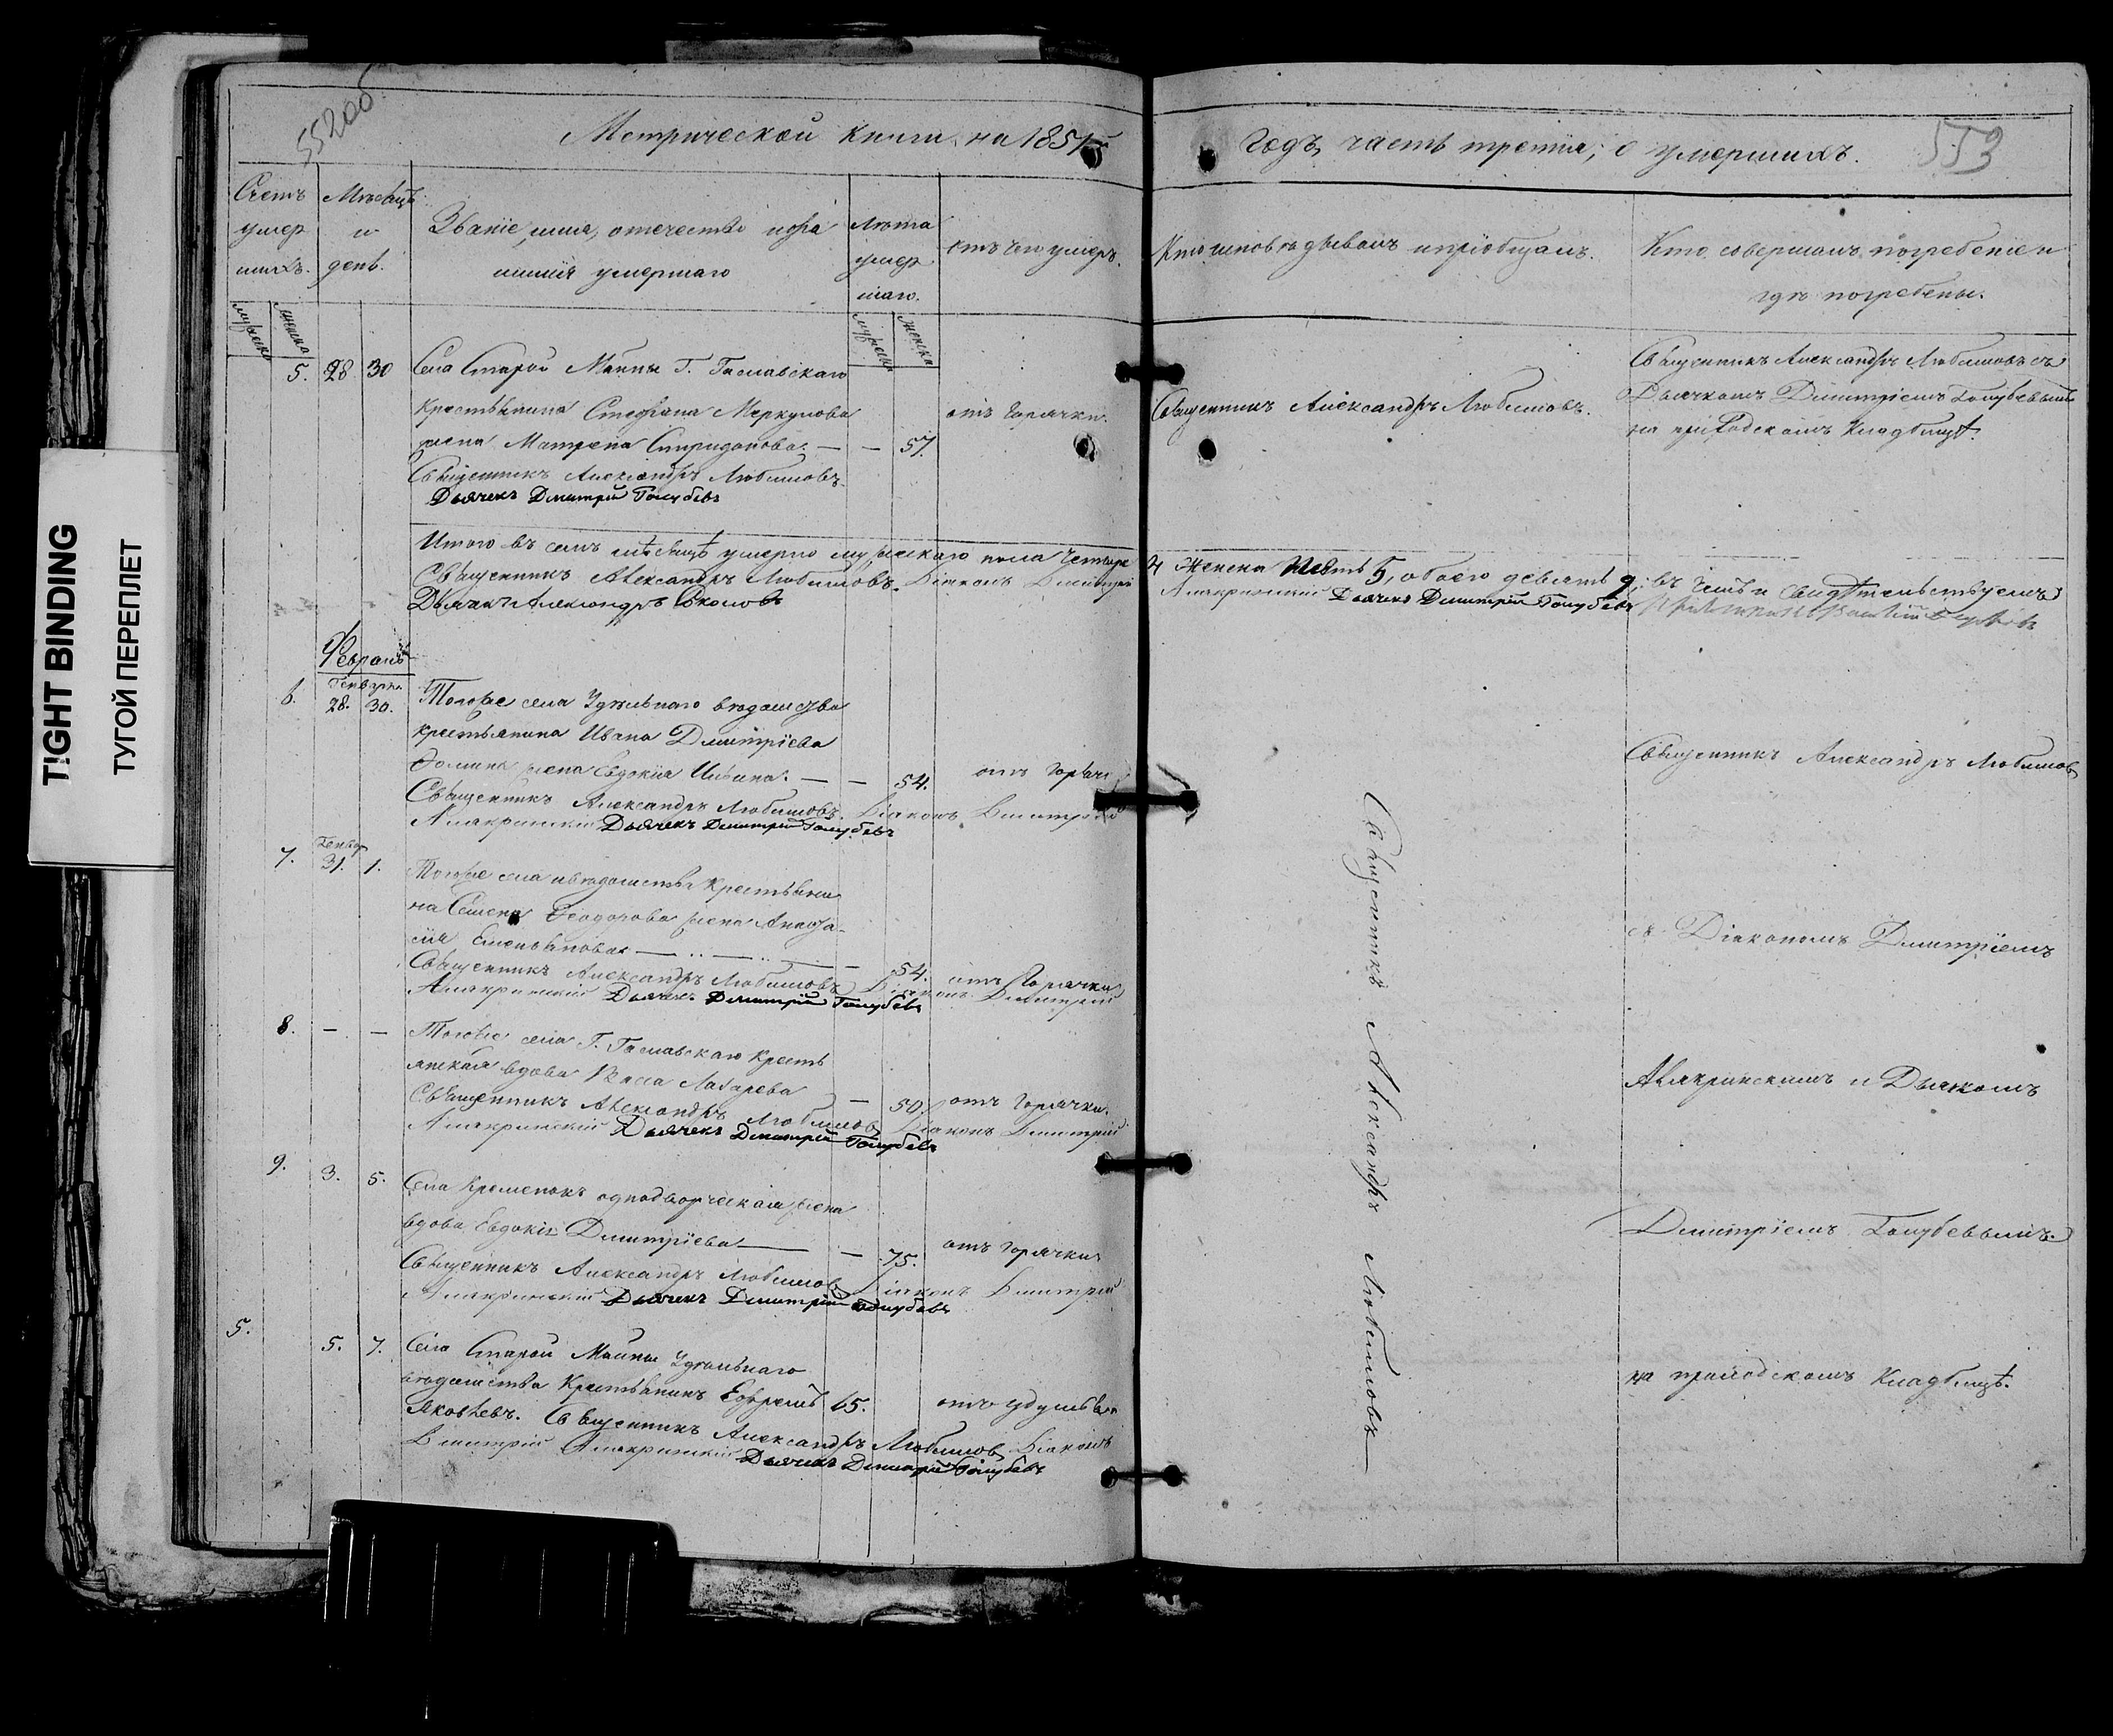 TIGHT BINDING
ТУГОЙ ПЕРЕПЛЕТ
552 об
Метрической книги на 1851й
годъ, часть третія, о умершихъ.
553
Счетъ умер шихъ.
Мѣсяцъ и день.
Званіе, имя, отечество и фа милія умершаго
Лѣта умер шаго.
отъ чего умеръ.
Кто исповѣдывалъ и пріобщалъ.
Кто совершалъ погребеніе и гдѣ погребены.
мужеска
женска
мужеска
женска
5. 28 30 Села Старой Майны Г.
крестьянина Стефана Меркулова
жена Матрена Спиридонова. — — 57.
отъ горячки.
Священникъ Александръ Любимовъ.
Священникъ Александръ Любимовъ съ
Дьячкомъ Димитріемъ Голубевымъ
на приходскомъ кладбищѣ.
Священникъ Александръ Любимовъ
Дьячекъ Дмитрій Голубевъ
Итого въ семъ мѣсяцѣ умерло мужескаго пола четыре
4 женска пять 5, обоего девять 9, въ чемъ и свидѣтельствуемъ
Священникъ Александръ Любимовъ. Діаконъ Димитрій
Алякринскій Дьячекъ Димитрій Голубевъ
Дьячекъ Александръ
Февраль
Генваря
6. 28. 30. Тогоже села Удѣльнаго вѣдомства
крестьянина Ивана Дмитріева
жена Евдокія — — 54.
отъ горяч
Священникъ Александръ Любимовъ
Священникъ Александръ Любимовъ. Діаконъ Дмитрій
Алякринскій Дьячекъ Дмитрій Голубевъ
Генвар
7. 31. 1. Тогоже села и вѣдомства крестьяни
на Семена Феодорова жена Анаста
сія Емельянова — — 54. отъ горячки
Священникъ Александръ Любимовъ Діаконъ Дмитрій
Алякринскій Дьячекъ Димитрій Голубевъ
съ Діакономъ Дмитріемъ
8. — — Тогоже села Г. кресть
янская вдова Васса Лазарева — 50. отъ горячки.
Священникъ Александръ Любимовъ Діаконъ Дмитрій
Алякринскій Дьячекъ Дмитрій Голубевъ
Алякринскимъ и Дьячкомъ
9. 3. 5. Села Кременокъ однодворческая жена
вдова Евдокія Дмитріева — — 75. отъ горячки
Священникъ Александръ Любимовъ Діаконъ Дмитрій
Алякринскій Дьячекъ Димитрій Голубевъ
Димитріемъ Голубевымъ.
5. 5. 7. Села Старой Майны Удѣльнаго
вѣдомства крестьянинъ Ефремъ 65. отъ удушья
Яковлевъ. Священникъ Александръ Любимовъ Діаконъ
Дмитрій Алякринскій Дьячекъ Димитрій Голубевъ
на приходскомъ кладбищѣ.
Священникъ Александръ Любимовъ